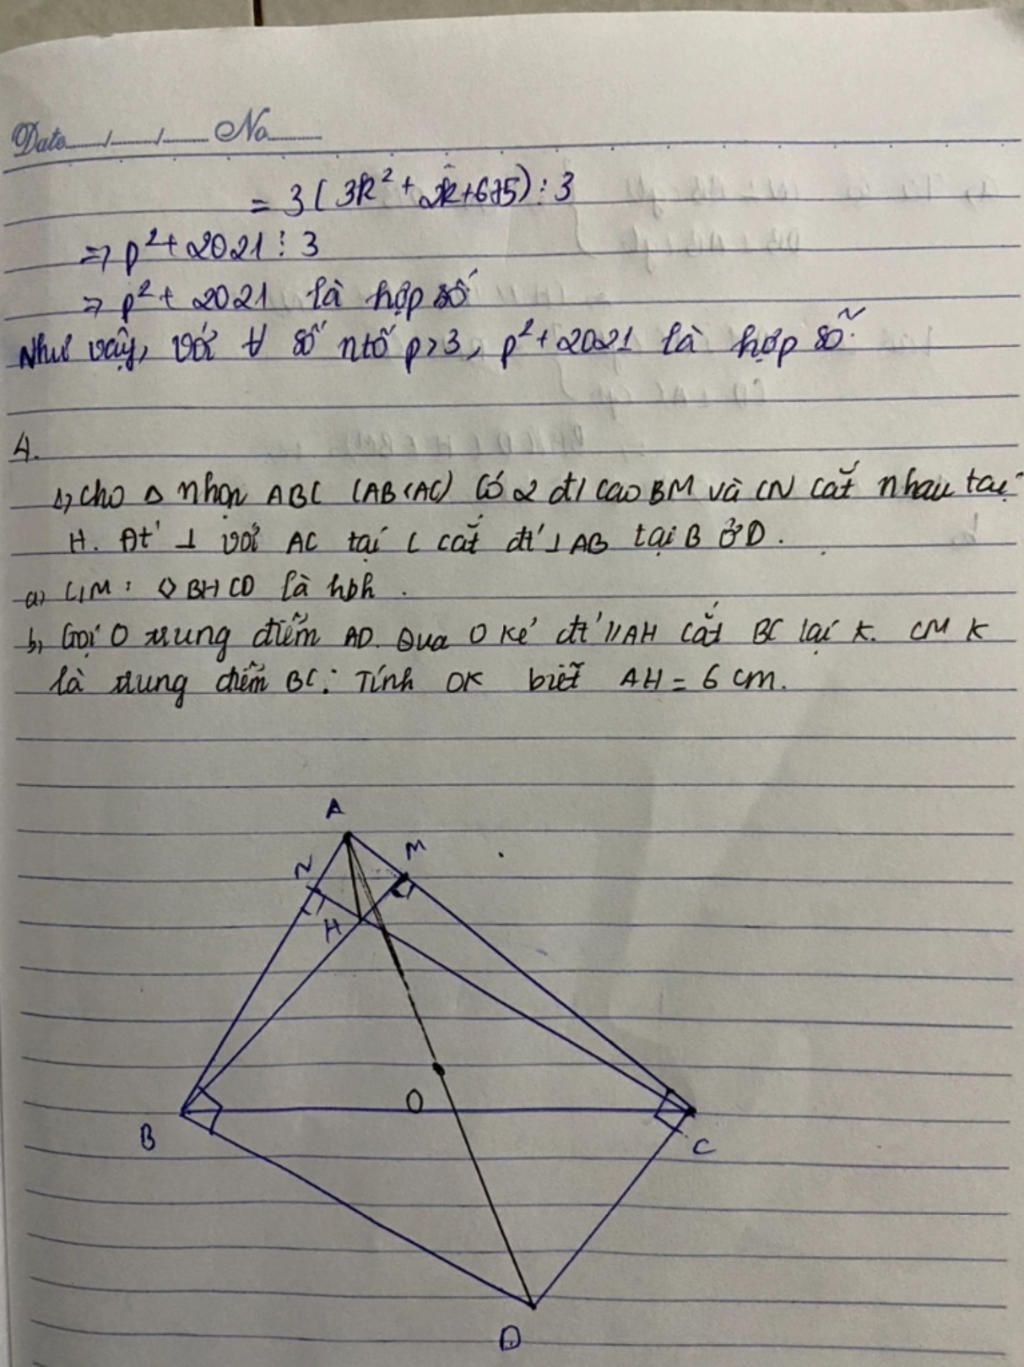 Date / / No
= 3(3k² + 2k+675) ⋮ 3
⇒ p²+ 2021 ⋮ 3
⇒ p²+ 2021 là hợp số
Như vậy, với ∀ số ntố p>3, p²+2021 là hợp số.
4.
1, cho Δ nhọn ABC (AB<AC) có 2 đ/ cao BM và CN cắt nhau tại
H. Đt' ⊥ với AC tại C cắt đt' ⊥ AB tại B ở D.
a) C/M: ◇ BHCD là hbh.
b, Gọi O trung điểm AD. Qua O kẻ đt' // AH cắt BC tại K. CM K
là trung điểm BC. Tính OK biết AH = 6 cm.
A
N
M
H
O
B
C
D